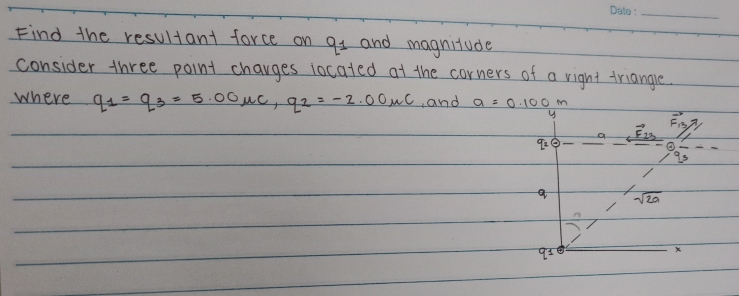 Date:
Find the resultant force on q1 and magnitude
Consider three point charges located at the corners of a right triangle.
where q1 = q3 = 5.00μC, q2 = -2.00μC, and a = 0.100 m
y
F⃗13
q2 a F⃗23
q3
a √2a
q1 x